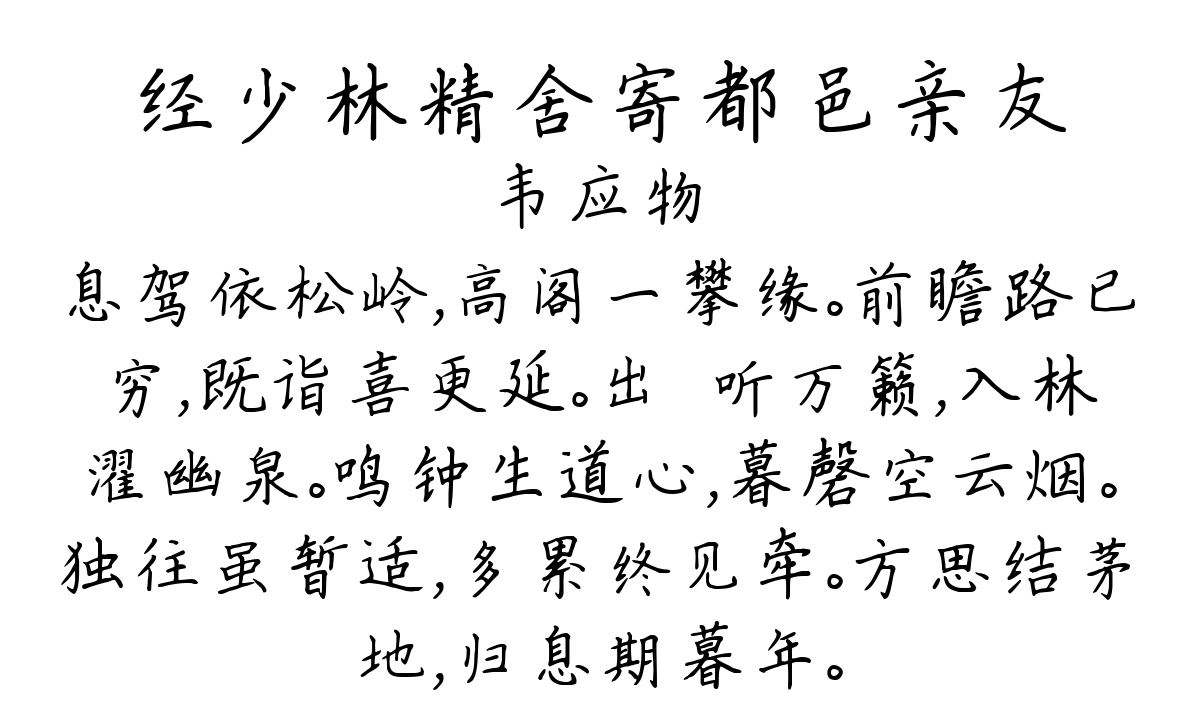 经少林精舍寄都邑亲友
韦应物
息驾依松岭,高阁一攀缘。前瞻路已
穷,既诣喜更延。出 听万籁,入林
濯幽泉。鸣钟生道心,暮磬空云烟。
独往虽暂适,多累终见牵。方思结茅
地,归息期暮年。